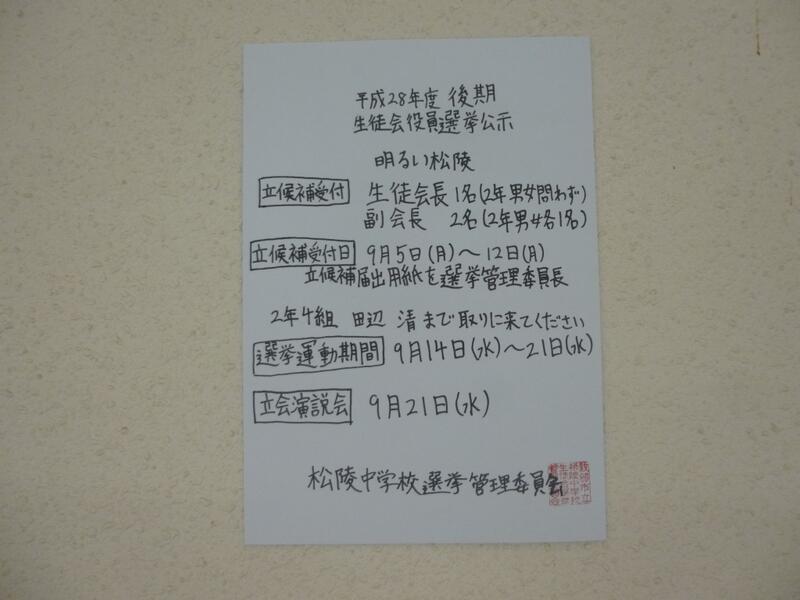 平成28年度 後期
生徒会役員選挙公示
明るい松陵
立候補受付 生徒会長 1名(2年男女問わず)
副会長 2名(2年男女各1名)
立候補受付日 9月5日(月)～12日(月)
立候補届出用紙を選挙管理委員長
2年4組 田辺 清まで取りに来てください
選挙運動期間 9月14日(水)～21日(水)
立会演説会 9月21日(水)
松陵中学校選挙管理委員会